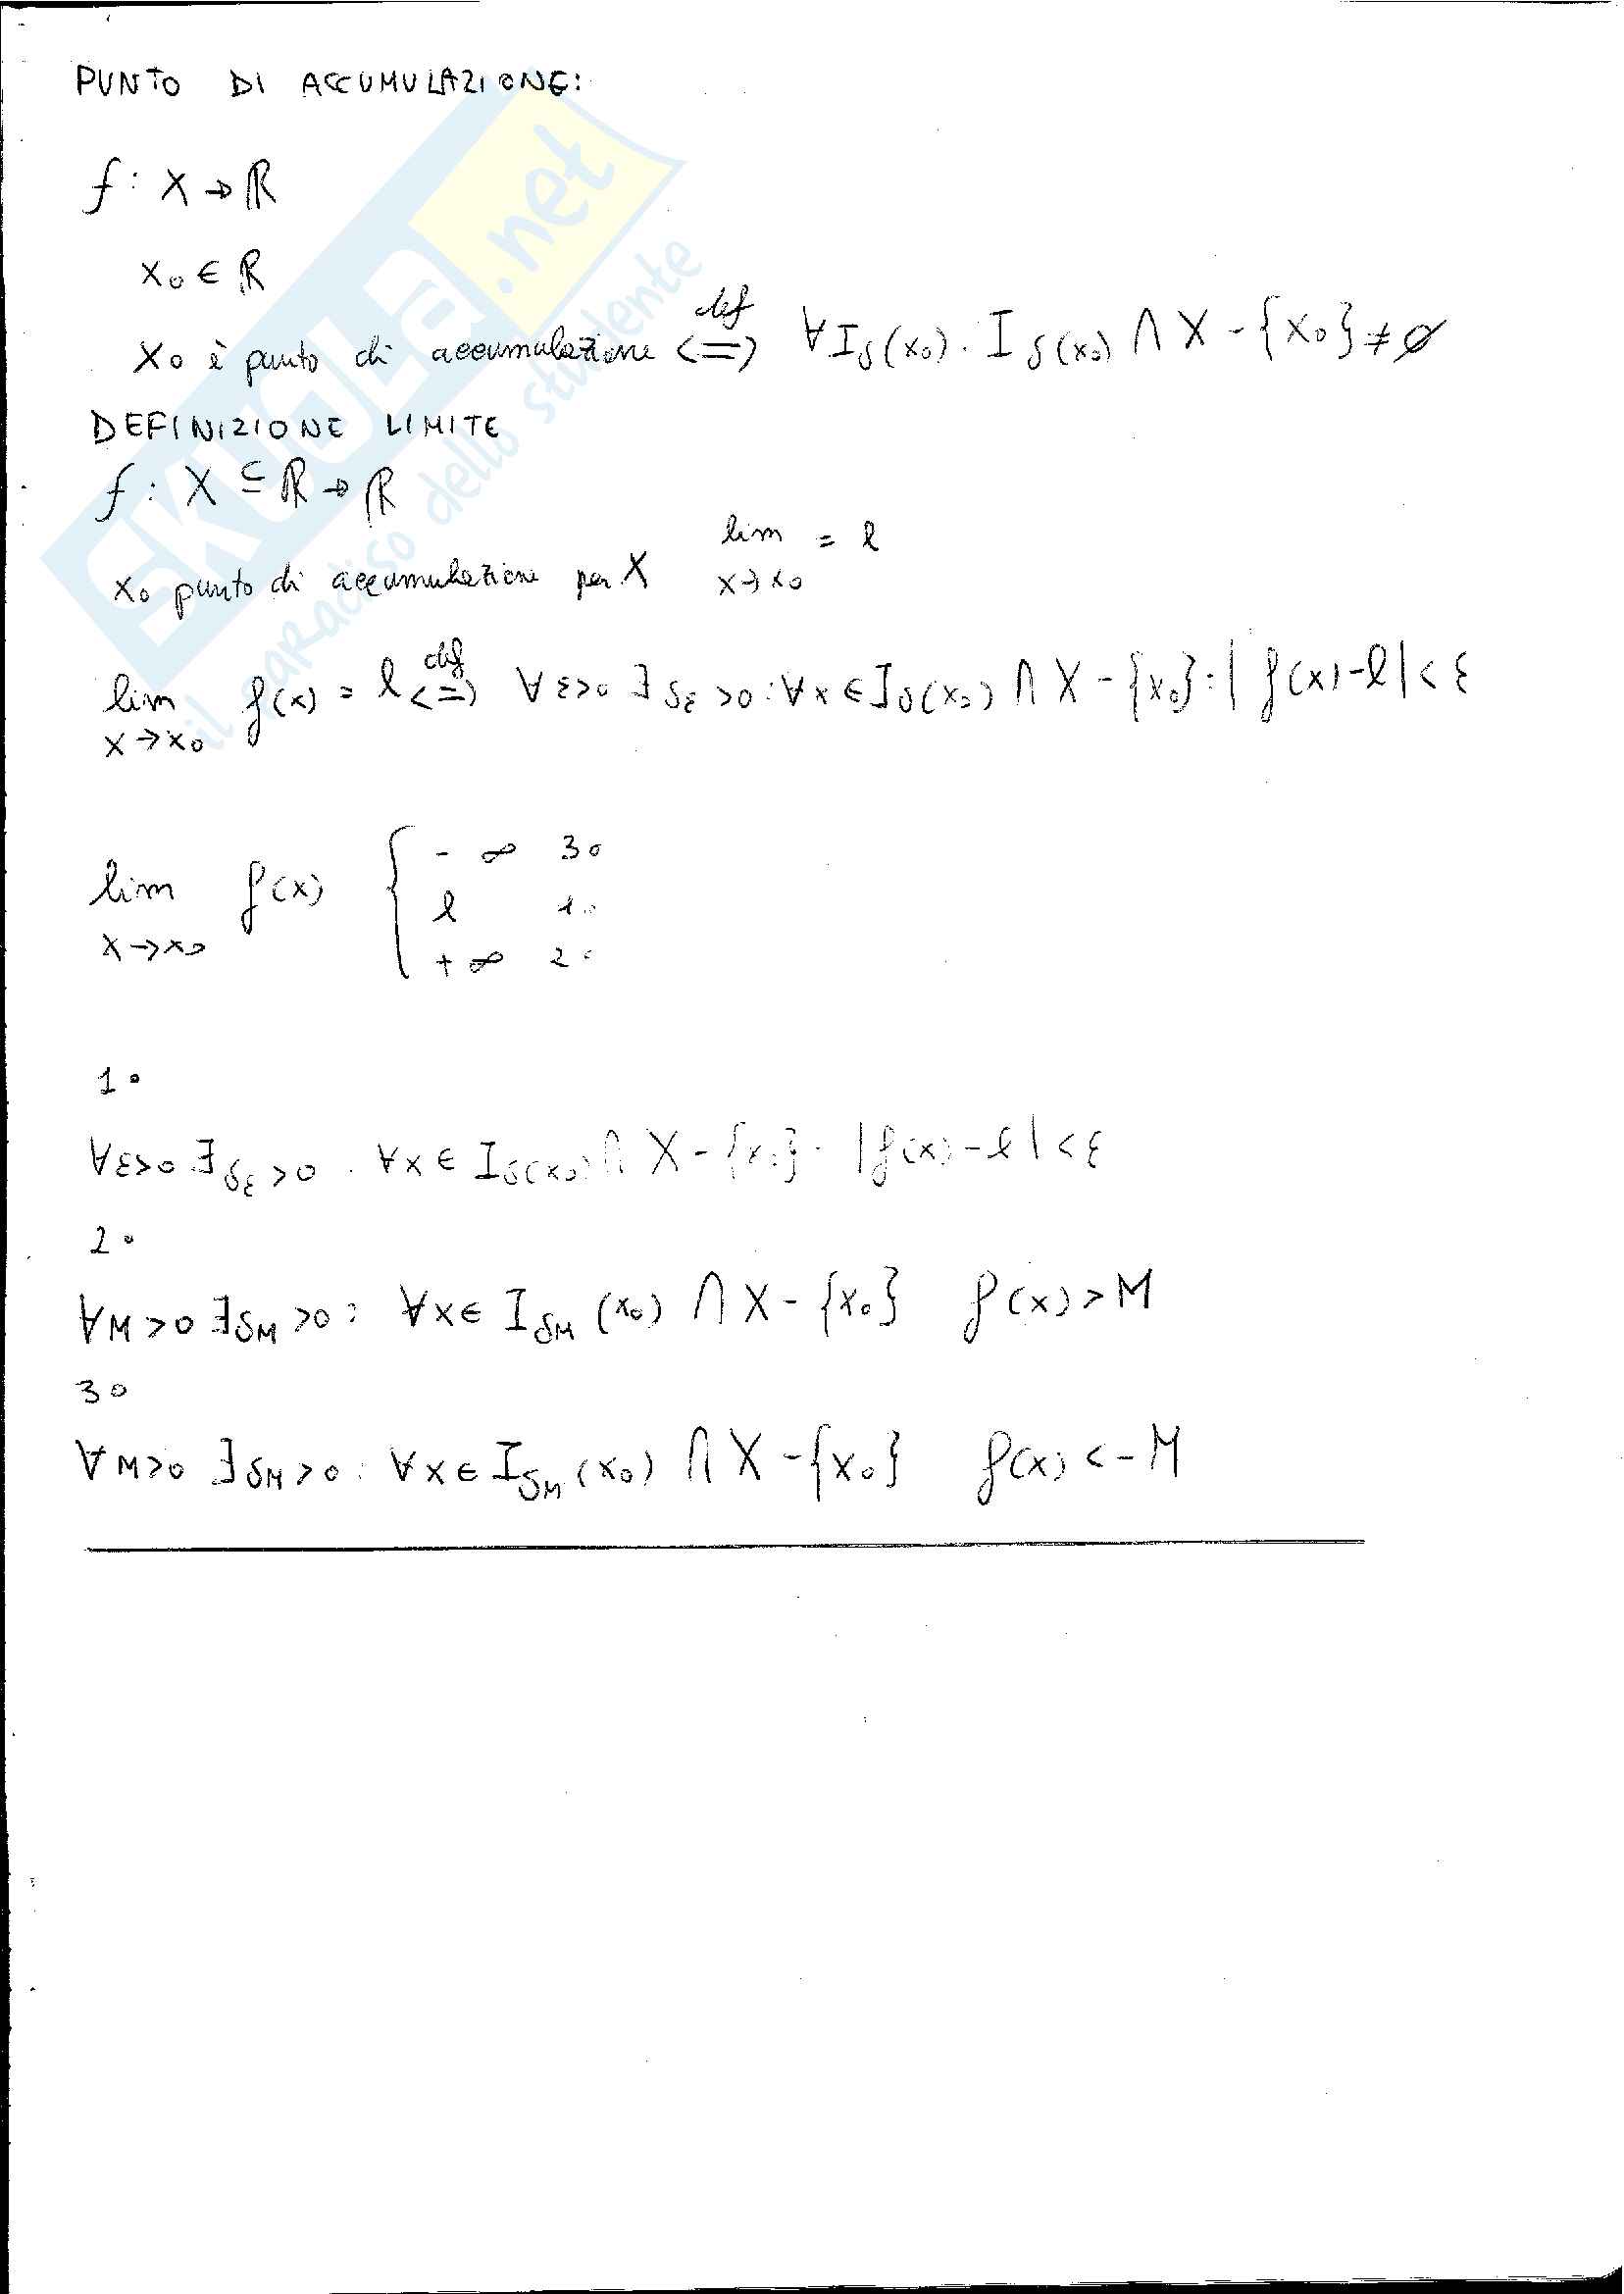 PUNTO DI ACCUMULAZIONE:
f: X → ℝ
x₀ ∈ ℝ
x₀ è punto di accumulazione <=> def ∀ I_δ(x₀) : I_δ(x₀) ∩ X - {x₀} ≠ ∅
DEFINIZIONE LIMITE
f: X ⊆ ℝ → ℝ
x₀ punto di accumulazione per X lim x→x₀ = l
lim x→x₀ f(x) = l <=> def ∀ε>0 ∃ δ_ε >0 : ∀x ∈ I_δ(x₀) ∩ X - {x₀} : | f(x) - l | < ε
lim x→x₀ f(x) {
- ∞ 3°
l 1°
+ ∞ 2°
1°
∀ε>0 ∃ δ_ε >0 : ∀x ∈ I_δ(x₀) ∩ X - {x₀} : |f(x) - l| < ε
2°
∀M>0 ∃ δ_M >0 : ∀x ∈ I_δM (x₀) ∩ X - {x₀} f(x) > M
3°
∀M>0 ∃ δ_M >0 : ∀x ∈ I_δM (x₀) ∩ X - {x₀} f(x) < - M
SKUOLA.net
il paradiso dello studente